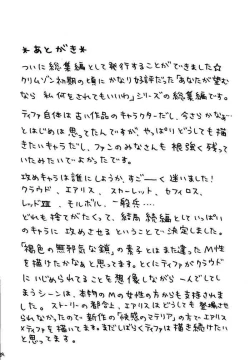 *あとがき*
ついに総集編として発行することができました☆
クリムゾン初期の頃にかなり好評だった「あなたが望む
なら 私何をされてもいいわ」シリーズの総集編です。
ティファ自体は古い作品のキャラクターだし、今さらかなぁ…
とはじめは思ってたんですが、やっぱりどうしても描
きたいキャラだし、ファンのみなさんも根強く残って
いたみたいでよかったです。
攻めキャラは誰にしようか、すごーく迷いました!
クラウド、エアリス、スカーレット、セフィロス、
レッドⅩⅢ、モルボル、一般兵…。
どれも捨てがたくって、結局続編としていっぱい
のキャラに攻めさせるということで決定しました。
「褐色の無邪気な鎖」の素子とはまた違ったM性
を描けたかなぁと思ってます。とくにティファがクラウド
にいじめられてることを想像しながら一人でして
しまうシーンは、本物のMの女性の方からも支持されま
した。ストーリーの都合上、エアリスはどうしても登場させ
られなかったので新作の「快感のマテリア」の方でエアリス
×ティファを描いてます。まだしばらくティファは描き続けたい
と思ってます。